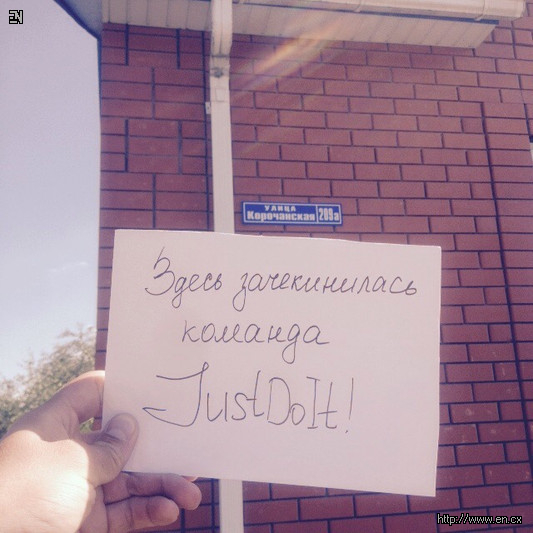 EN
УЛИЦА
Корочанская 289а
Здесь зачекинилась
команда
JustDoIt!
http://www.en.cx